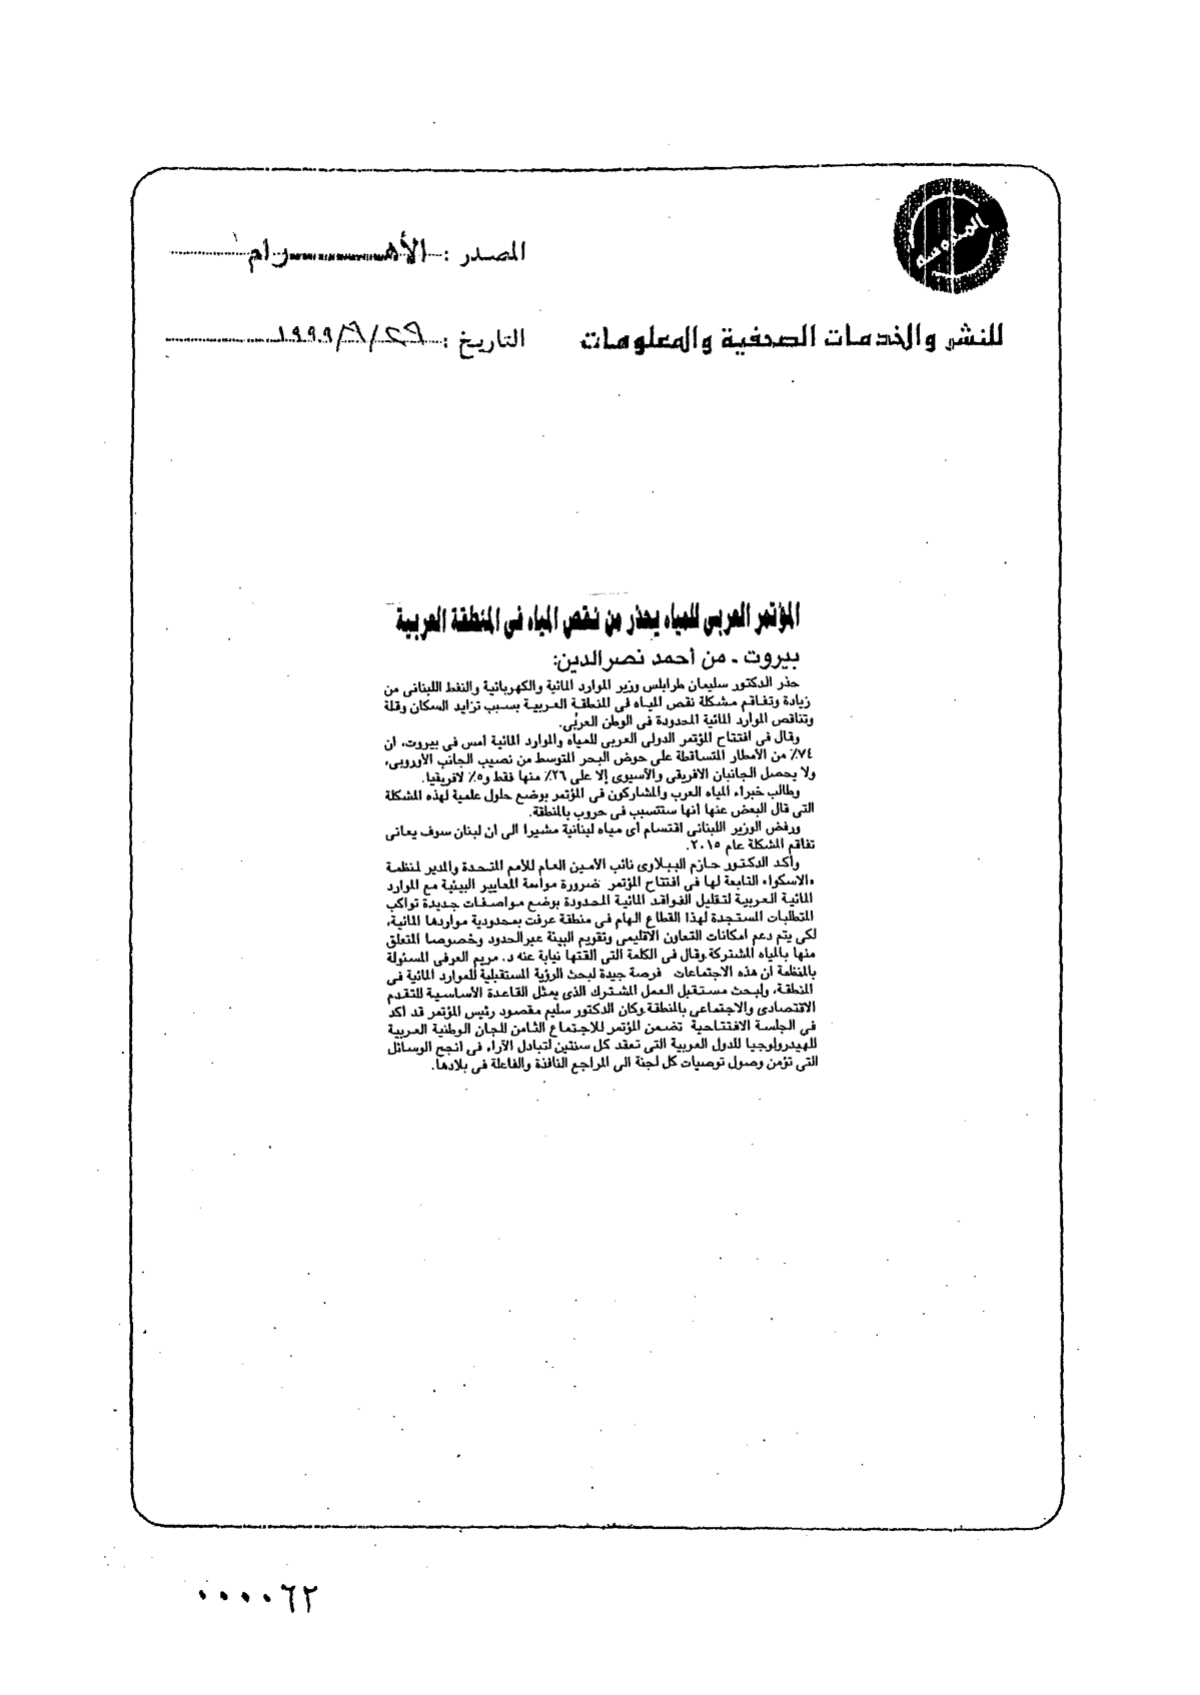 المدوسه
المصدر : الأهــــــرام
للنشر والخدمات الصحفية والمعلومات
التاريخ : ٢٩/٩/١٩٩٩
المؤتمر العربى للمياه يحذر من نقص المياه فى المنطقة العربية
بيروت ـ من أحمد نصر الدين:
حذر الدكتور سليمان طرابلس وزير الموارد المائية والكهربائية والنفط اللبنانى من
زيادة وتفاقم مشكلة نقص المياه فى المنطقة العربية بسبب تزايد السكان وقلة
وتناقص الموارد المائية المحدودة فى الوطن العربى.
وقال فى افتتاح المؤتمر الدولى العربى للمياه والموارد المائية أمس فى بيروت، أن
٧٤٪ من الأمطار المتساقطة على حوض البحر المتوسط من نصيب الجانب الأوروبى،
ولا يحصل الجانبان الافريقى والآسيوى إلا على ٢٦٪ منها فقط و٥٪ لافريقيا.
وطالب خبراء المياه العرب والمشاركون فى المؤتمر بوضع حلول علمية لهذه المشكلة
التى قال البعض عنها أنها ستتسبب فى حروب بالمنطقة.
ورفض الوزير اللبنانى اقتسام أى مياه لبنانية مشيرا الى ان لبنان سوف يعانى
تفاقم المشكلة عام ٢٠١٥.
وأكد الدكتور حازم الببلاوى نائب الأمين العام للأمم المتحدة والمدير لمنظمة
«الاسكوا» التابعة لها فى افتتاح المؤتمر ضرورة مواءمة المعايير البيئية مع الموارد
المائية العربية لتقليل الفواقد المائية المحدودة بوضع مواصفات جديدة تواكب
المتطلبات المستجدة لهذا القطاع الهام فى منطقة عرفت بمحدودية مواردها المائية،
لكى يتم دعم امكانات التعاون الاقليمى وتقويم البيئة عبر الحدود وخصوصا المتعلق
منها بالمياه المشتركة.وقال فى الكلمة التى القتها نيابة عنه د. مريم العرفى المسئولة
بالمنظمة ان هذه الاجتماعات فرصة جيدة لبحث الرؤية المستقبلية للموارد المائية فى
المنطقة، ولبحث مستقبل العمل المشترك الذى يمثل القاعدة الأساسية للتقدم
الاقتصادى والاجتماعى بالمنطقة.وكان الدكتور سليم مقصود رئيس المؤتمر قد أكد
فى الجلسة الافتتاحية تضمن المؤتمر للاجتماع الثامن للجان الوطنية العربية
للهيدرولوجيا للدول العربية التى تعقد كل سنتين لتبادل الآراء فى انجح الوسائل
التى تؤمن وصول توصيات كل لجنة الى المراجع النافذة والفاعلة فى بلادها.
٠٠٠٠٦٢